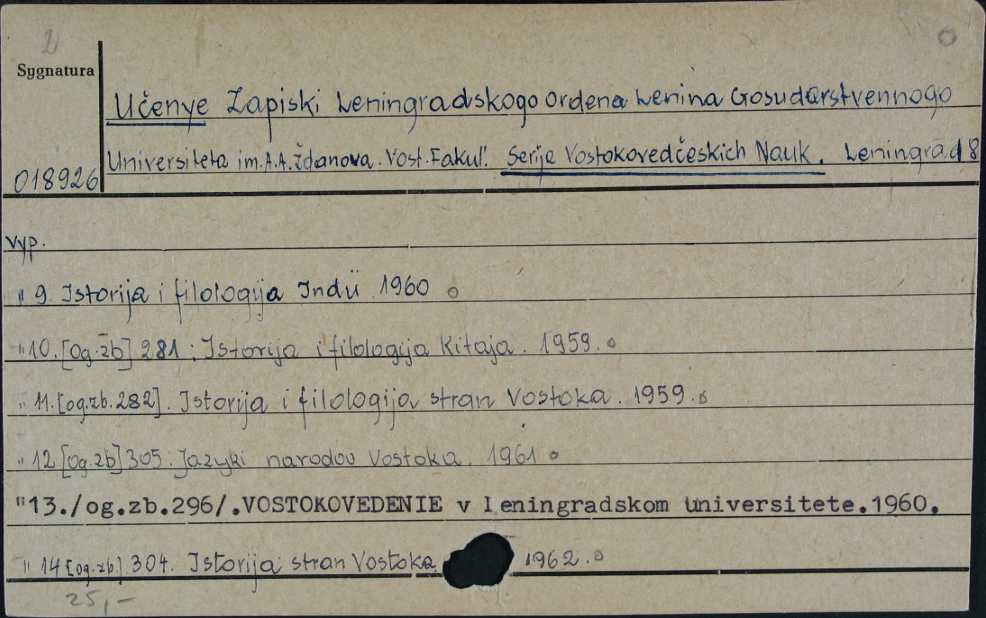 2
Sygnatura
Učenye Zapiski Leningradskogo ordena Lenina Gosudarstvennogo
Universiteta im. A.A. Ždanova. Vost. Fakul'. Serija Vostokovedčeskich Nauk. Leningrad 8
018926
vyp.
" 9 Istorija i filologija Indii 1960
" 10. [og.zb] 281 : Istorija i filologija Kitaja. 1959.
" 11. [og.zb. 282]. Istorija i filologija stran Vostoka. 1959.
" 12 [og.zb] 305. Jazyki narodov Vostoka. 1961
"13./og.zb.296/.VOSTOKOVEDENIE v Leningradskom universitete.1960.
" 14 [og.zb.] 304. Istorija stran Vostoka 1962.
25,-